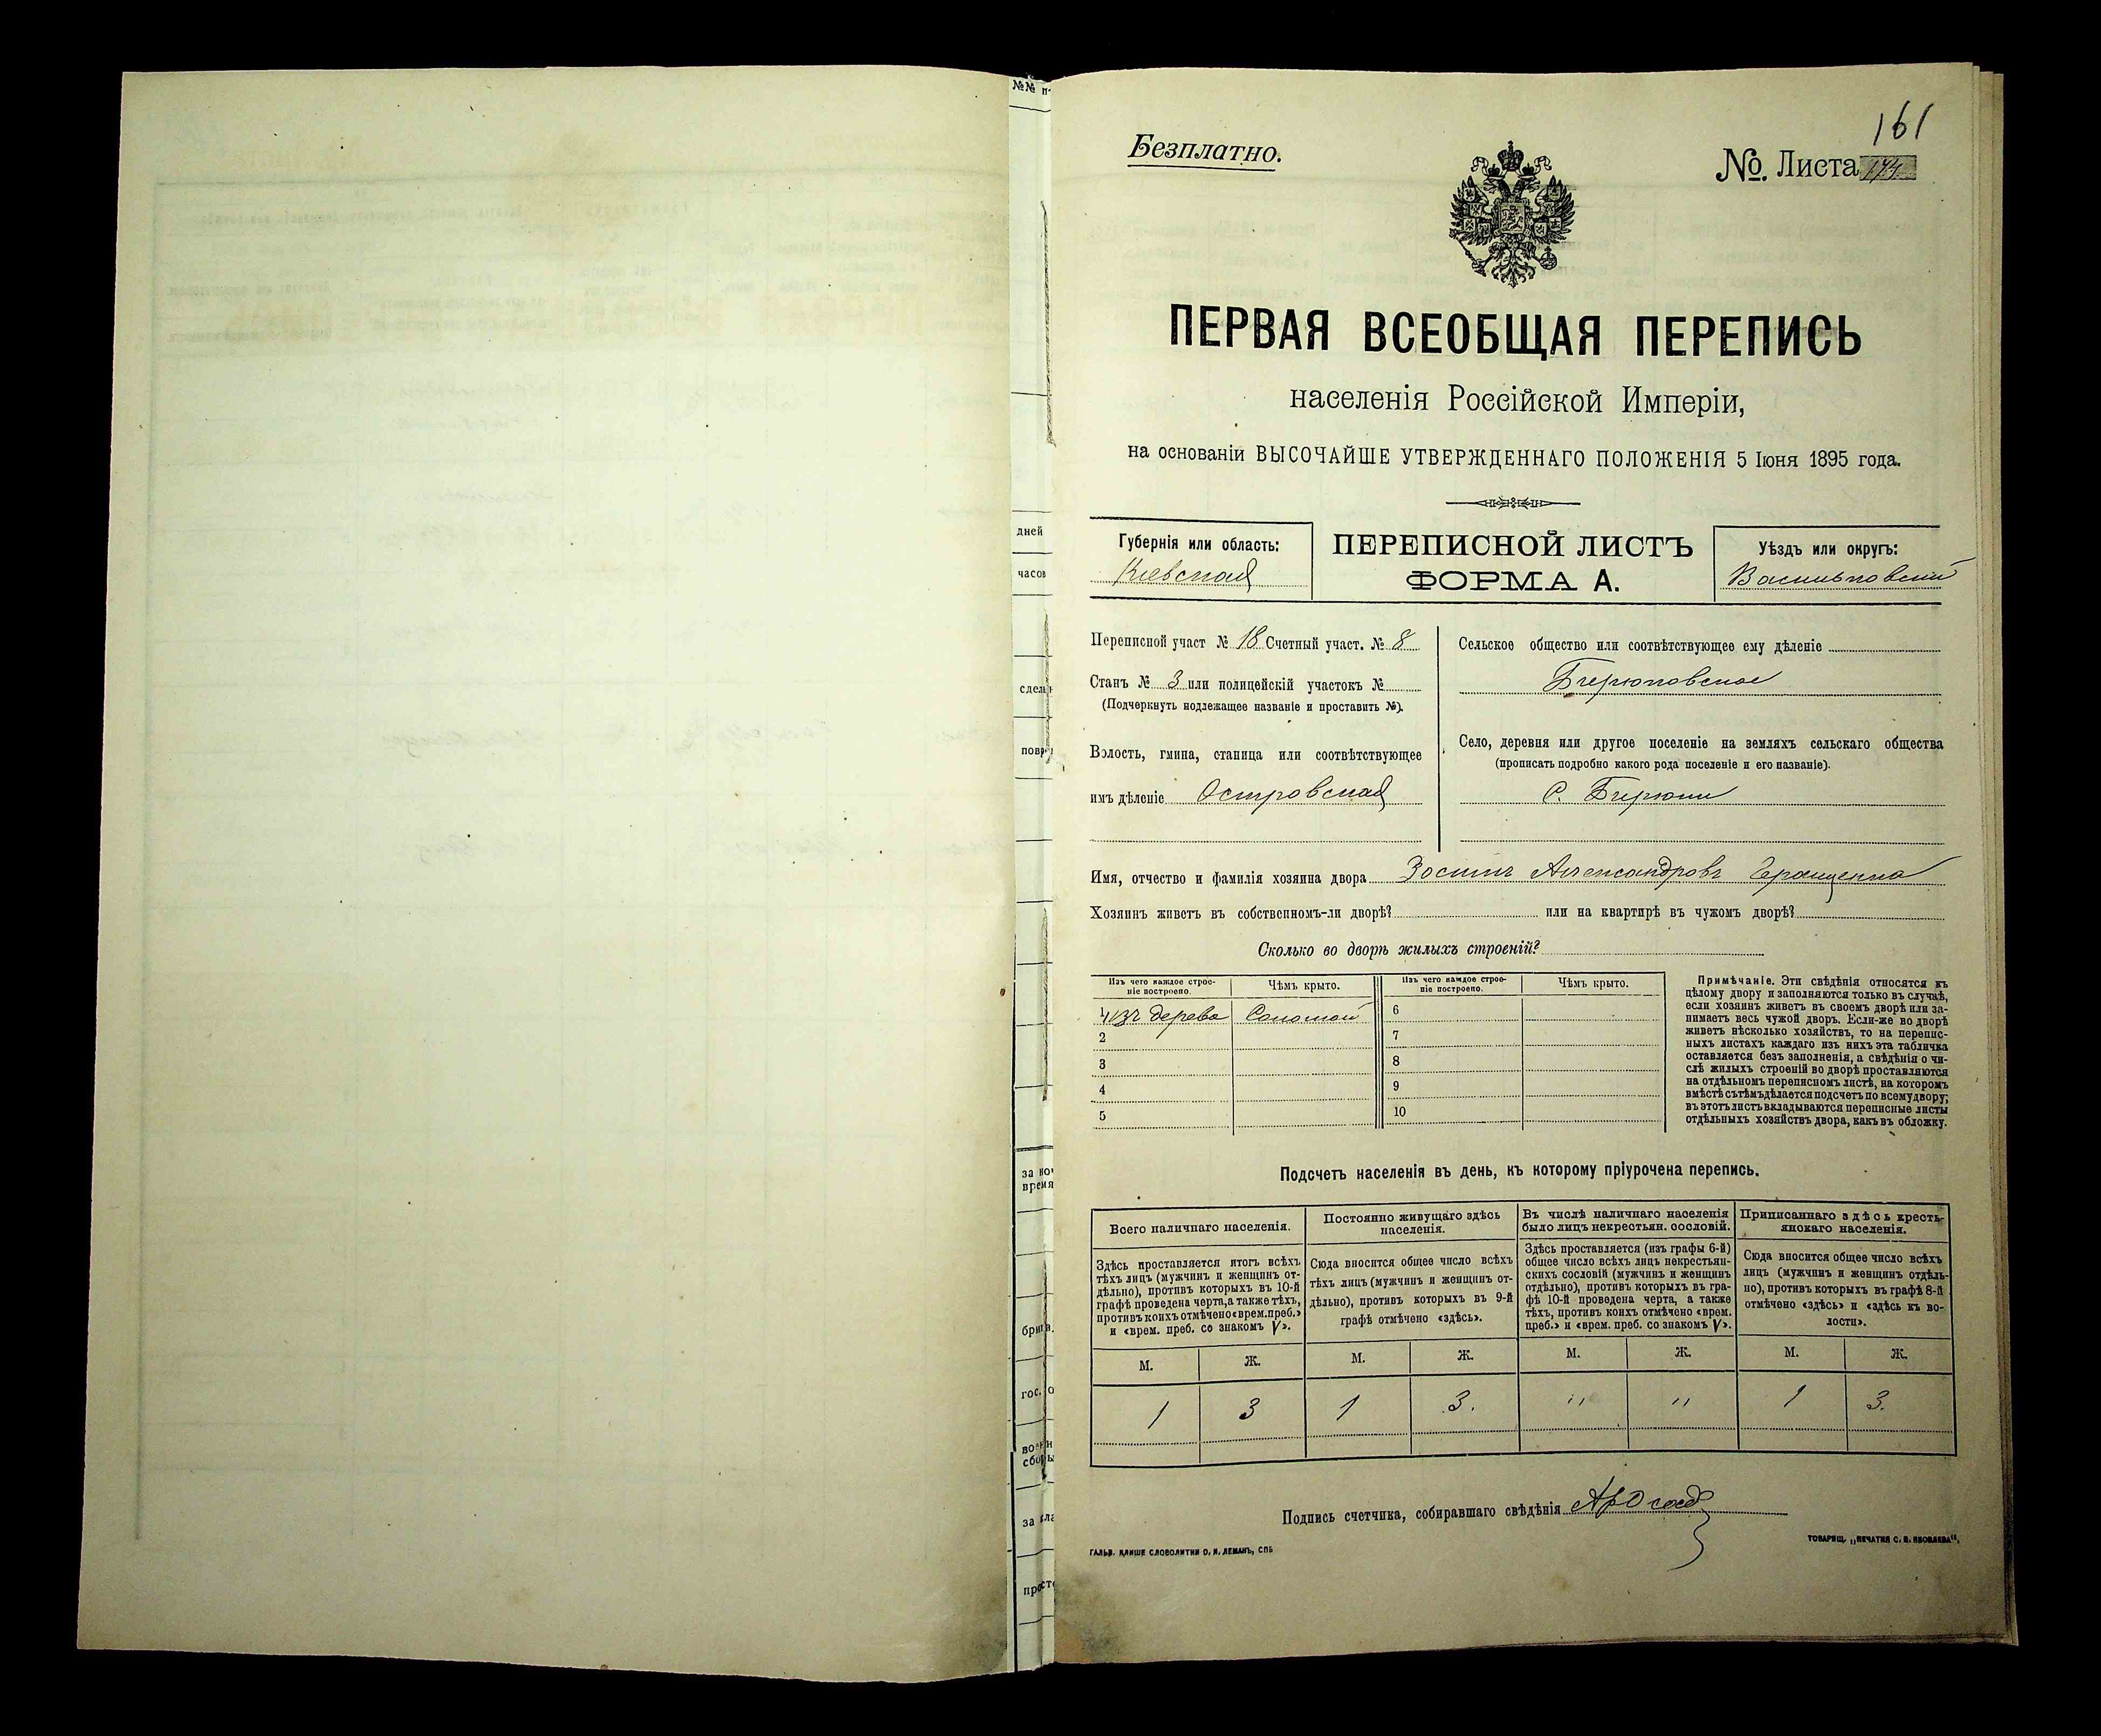 161
Безплатно.
№. Листа 174
ПЕРВАЯ ВСЕОБЩАЯ ПЕРЕПИСЬ
населенія Россійской Имперіи,
на основаніи ВЫСОЧАЙШЕ УТВЕРЖДЕННАГО ПОЛОЖЕНІЯ 5 Іюня 1895 года.
Губернія или область:
Кіевская
ПЕРЕПИСНОЙ ЛИСТЪ
ФОРМА А.
Уѣздъ или округъ:
Васильковскій
Переписной участ № 18 Счетный участ. № 8
Станъ № 3 или полицейскій участокъ №
(Подчеркнуть подлежащее названіе и проставить №).
Волость, гмина, станица или соотвѣтствующее
имъ дѣленіе Островская
Сельское общество или соотвѣтствующее ему дѣленіе
Бирюковское
Село, деревня или другое поселеніе на земляхъ сельскаго общества
(прописать подробно какого рода поселеніе и его названіе).
С. Бирюки
Имя, отчество и фамилія хозяина двора Зосимъ Александровъ Геращенко
Хозяинъ живетъ въ собственномъ-ли дворѣ? или на квартирѣ въ чужомъ дворѣ?
Сколько во дворѣ жилыхъ строеній?
Изъ чего каждое строе-
ніе построено.
Чѣмъ крыто.
Изъ чего каждое строе-
ніе построено.
Чѣмъ крыто.
1 изъ дерева Соломой 6
2 7
3 8
4 9
5 10
Примѣчаніе. Эти свѣдѣнія относятся къ
цѣлому двору и заполняются только въ случаѣ,
если хозяинъ живетъ въ своемъ дворѣ или за-
нимаетъ весь чужой дворъ. Если-же во дворѣ
живетъ нѣсколько хозяйствъ, то на перепис-
ныхъ листахъ каждаго изъ нихъ эта табличка
оставляется безъ заполненія, а свѣдѣнія о чи-
слѣ жилыхъ строеній во дворѣ проставляются
на отдѣльномъ переписномъ листѣ, на которомъ
вмѣстѣ съ тѣмъ дѣлается подсчетъ по всему двору;
въ этотъ листъ вкладываются переписные листы
отдѣльныхъ хозяйствъ двора, какъ въ обложку.
Подсчетъ населенія въ день, къ которому пріурочена перепись.
Всего наличнаго населенія.
Здѣсь проставляется итогъ всѣхъ
тѣхъ лицъ (мужчинъ и женщинъ от-
дѣльно), противъ которыхъ въ 10-й
графѣ проведена черта, а также тѣхъ,
противъ коихъ отмѣчено «врем. преб.»
и «врем. преб. со знакомъ V».
Постоянно живущаго здѣсь
населенія.
Сюда вносится общее число всѣхъ
тѣхъ лицъ (мужчинъ и женщинъ от-
дѣльно), противъ которыхъ въ 9-й
графѣ отмѣчено «здѣсь».
Въ числѣ наличнаго населенія
было лицъ некрестьян. сословій.
Здѣсь проставляется (изъ графы 6-й)
общее число всѣхъ лицъ некрестьян-
скихъ сословій (мужчинъ и женщинъ
отдѣльно), противъ которыхъ въ гра-
фѣ 10-й проведена черта, а также
тѣхъ, противъ коихъ отмѣчено «врем.
преб.» и «врем. преб. со знакомъ V».
Приписаннаго здѣсь кресть-
янскаго населенія.
Сюда вносится общее число всѣхъ
лицъ (мужчинъ и женщинъ отдѣль-
но), противъ которыхъ въ графѣ 8-й
отмѣчено «здѣсь» и «здѣсь къ во-
лости».
М. Ж. М. Ж. М. Ж. М. Ж.
1 3 1 3. " " 1 3.
Подпись счетчика, собиравшаго свѣдѣнія
ГАЛЬВ. КЛИШЕ СЛОВОЛИТНИ О. И. ЛЕМАНЪ, СПБ
ТОВАРИЩ. „ПЕЧАТНЯ С. П. ЯКОВЛЕВА".
№№
дней
часов